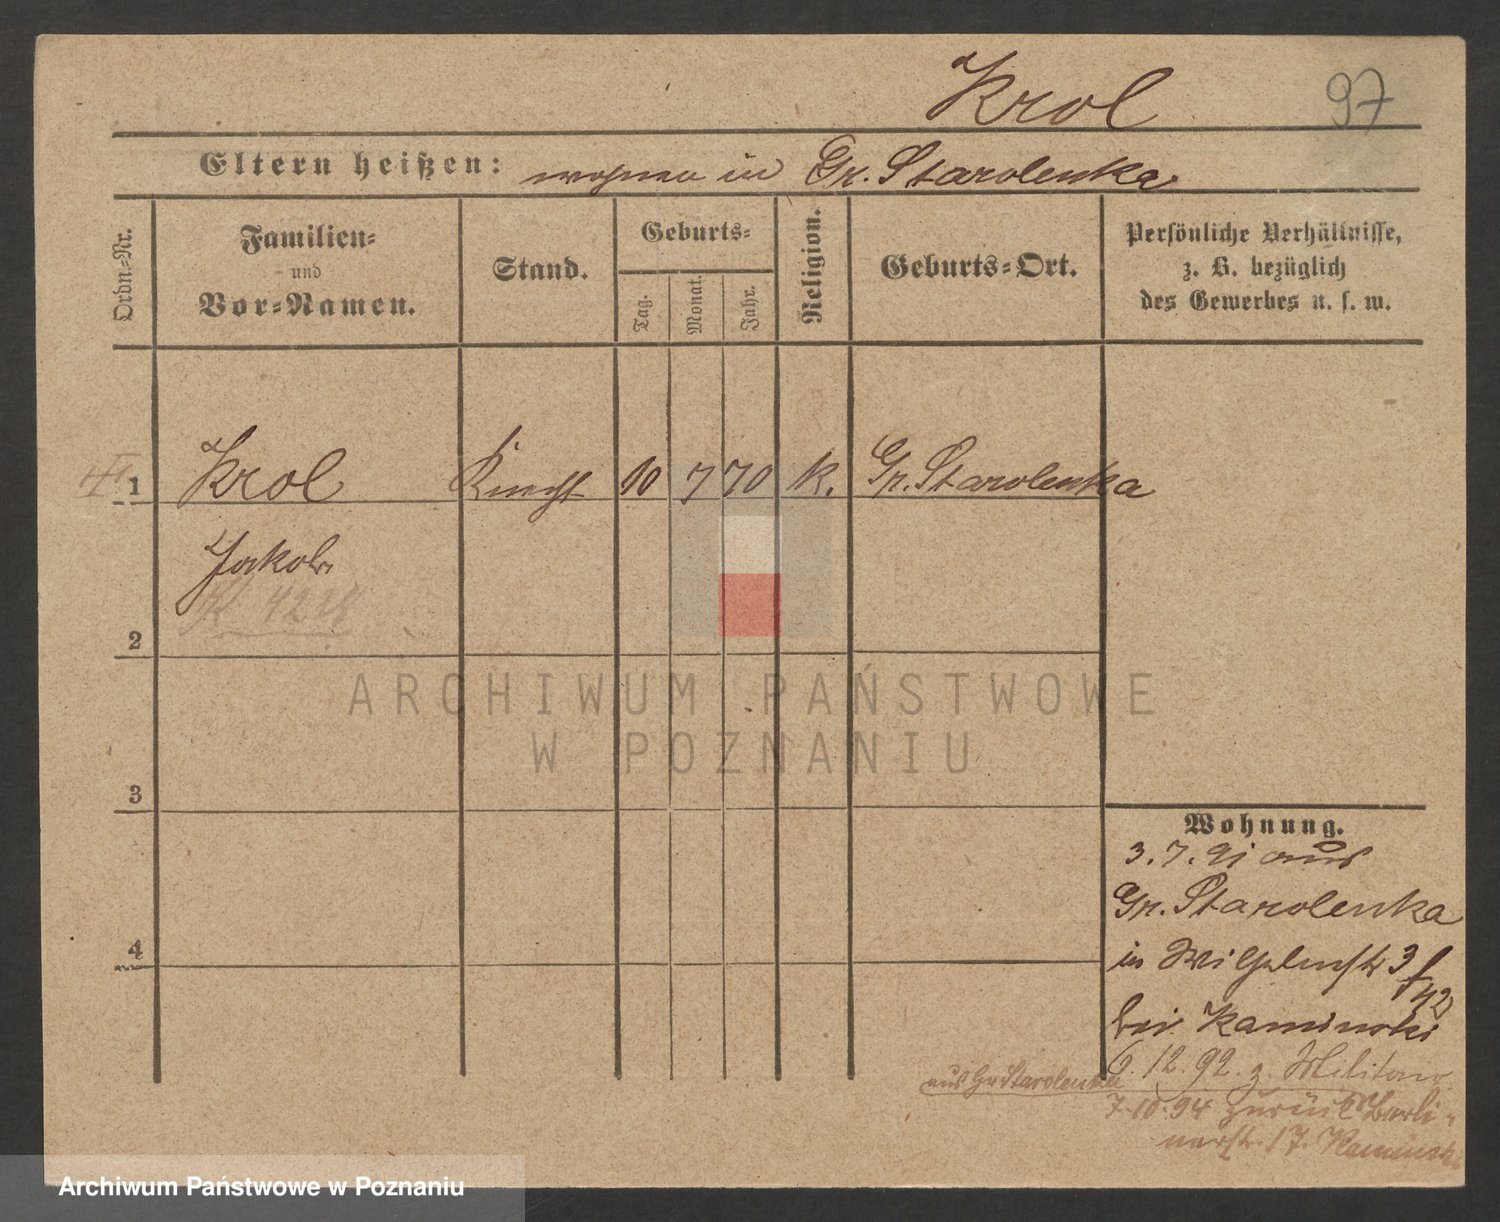 Krol 97
Eltern heißen: wohnen in Gr. Starolenka
Ordn.-Nr.
Familien-
und
Vor-Namen.
Stand.
Geburts-
Tag.
Monat.
Jahr.
Religion.
Geburts-Ort.
Persönliche Verhältnisse,
z. B. bezüglich
des Gewerbes u. s. w.
1 Krol Knecht 10 7 70 k. Gr. Starolenka
Jakob.
2
3
4
ARCHIWUM PAŃSTWOWE
W POZNANIU
Wohnung.
3.7.91 aus
Gr. Starolenka
in Wilhelmstr 3
f 42
bei Kaminski
6.12.92. z. Militair
aus Gr. Starolenka
7.10.94 zurück Berli-
nerstr. 17. Kaminski
Archiwum Państwowe w Poznaniu